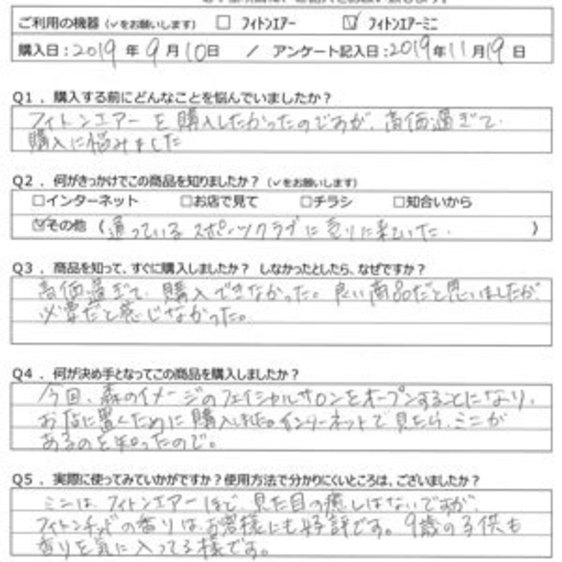 ご利用の機器（✓をお願いします） □ フィトンエアー ☑ フィトンエアーミニ
購入日：2019 年 9 月 10 日 ／ アンケート記入日：2019 年 11 月 19 日
Q1．購入する前にどんなことを悩んでいましたか？
フィトンエアーを購入したかったのですが、高価過ぎて、
購入に悩みました
Q2．何がきっかけでこの商品を知りましたか？（✓をお願いします）
□インターネット □お店で見て □チラシ □知合いから
☑その他（通っているスポーツクラブに売りに来ていた。）
Q3．商品を知って、すぐに購入しましたか？ しなかったとしたら、なぜですか？
高価過ぎて、購入できなかった。良い商品だと思いましたが、
必要だと感じなかった。
Q4．何が決め手となってこの商品を購入しましたか？
今回、森のイメージのフェイシャルサロンをオープンすることになり、
お店に置くために購入しました。インターネットで見たら、ミニが
あるのを知ったので。
Q5．実際に使ってみていかがですか？使用方法で分かりにくいところは、ございましたか？
ミニは、フィトンエアーほど、見た目の癒しはないですが、
フィトンチッドの香りは、お客様にも好評です。9歳の子供も
香りを気に入ってる様です。